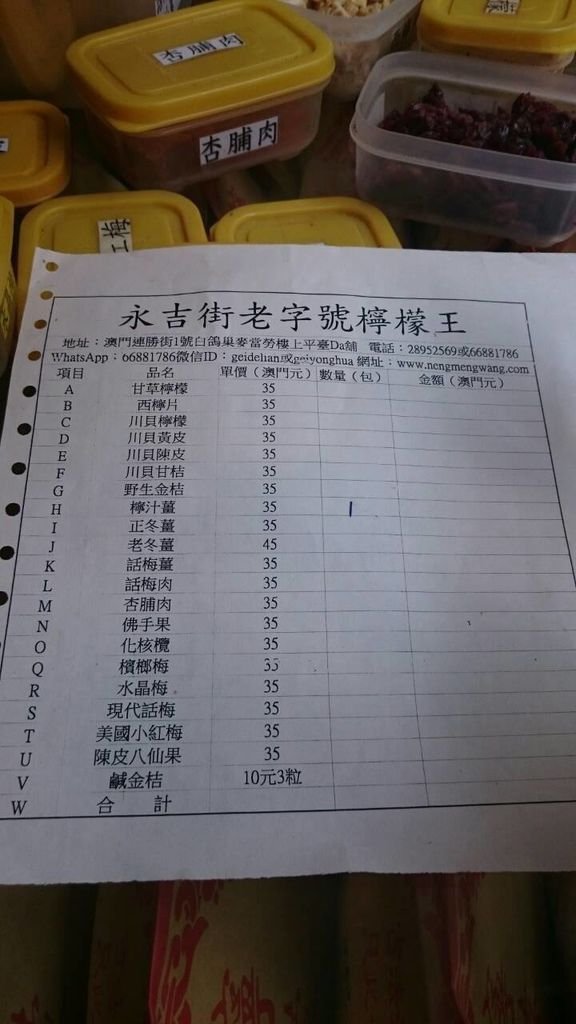 杏脯肉
杏脯肉
江梅
永吉街老字號檸檬王
地址：澳門連勝街1號白鴿巢麥當勞樓上平臺Da舖 電話：28952569或66881786
WhatsApp：66881786微信ID：geidelian或geiyonghua 網址：www.nengmengwang.com
項目 品名 單價（澳門元） 數量（包） 金額（澳門元）
A 甘草檸檬 35
B 西檸片 35
C 川貝檸檬 35
D 川貝黃皮 35
E 川貝陳皮 35
F 川貝甘桔 35
G 野生金桔 35
H 檸汁薑 35
I 正冬薑 35
J 老冬薑 45
K 話梅薑 35
L 話梅肉 35
M 杏脯肉 35
N 佛手果 35
O 化核欖 35
Q 檳榔梅 35
R 水晶梅 35
S 現代話梅 35
T 美國小紅梅 35
U 陳皮八仙果 35
V 鹹金桔 10元3粒
W 合 計